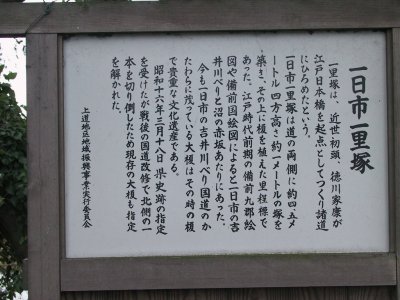 一日市一里塚
一里塚は、近世初頭、徳川家康が
江戸日本橋を起点としてつくり諸道
にひろめたという。
一日市一里塚は道の両側に約四・五メ
ートル四方高さ約一メートルの塚を
築き、その上に榎を植えた里程標で
あった。江戸時代前期の備前九郡絵
図や備前国絵図によると一日市の吉
井川べりと沼の赤坂あたりにあった。
今も一日市の吉井川べり国道のか
たわらに茂っている大榎はその時の榎
で貴重な文化遺産である。
昭和十六年三月十八日 県史跡の指定
を受けたが戦後の国道改修で北側の一
本を切り倒したため現存の大榎も指定
を解かれた。
上道地区地域振興事業実行委員会